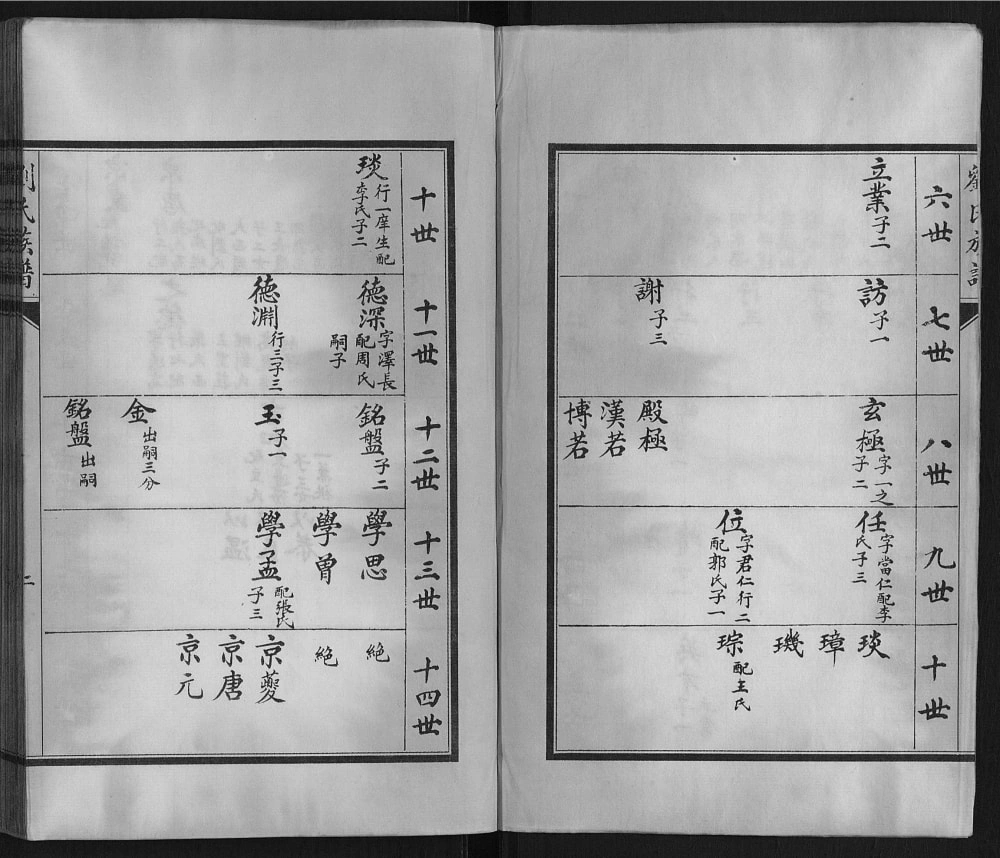 劉氏族譜
六世
立業 子二
七世
訪 子一
謝 子三
八世
玄極 字一之
子二
殿極
漢若
博若
九世
任 字當仁配李
氏子三
位 字君仁行二
配郭氏子一
十世
琰
璋
璣
琮 配王氏
十世
琰 行一庠生配
李氏子二
十一世
德深 字澤長
配周氏
嗣子
德淵 行三子三
十二世
銘盤 子二
玉 子一
金 出嗣三分
銘盤 出嗣
十三世
學思
學曾
學孟 配張氏
子三
十四世
絕
絕
京夔
京唐
京元
劉氏族譜
二